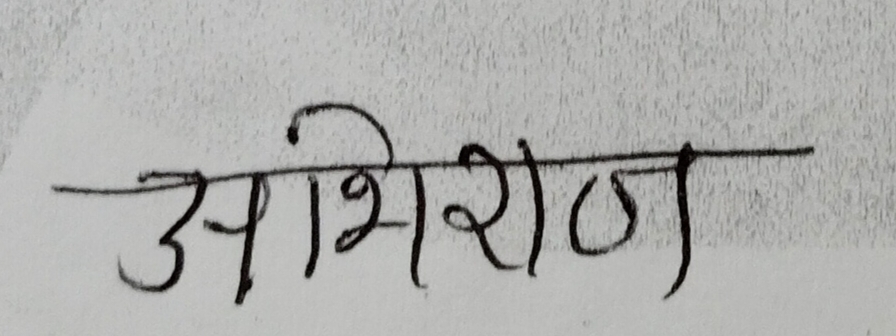 अभिराज